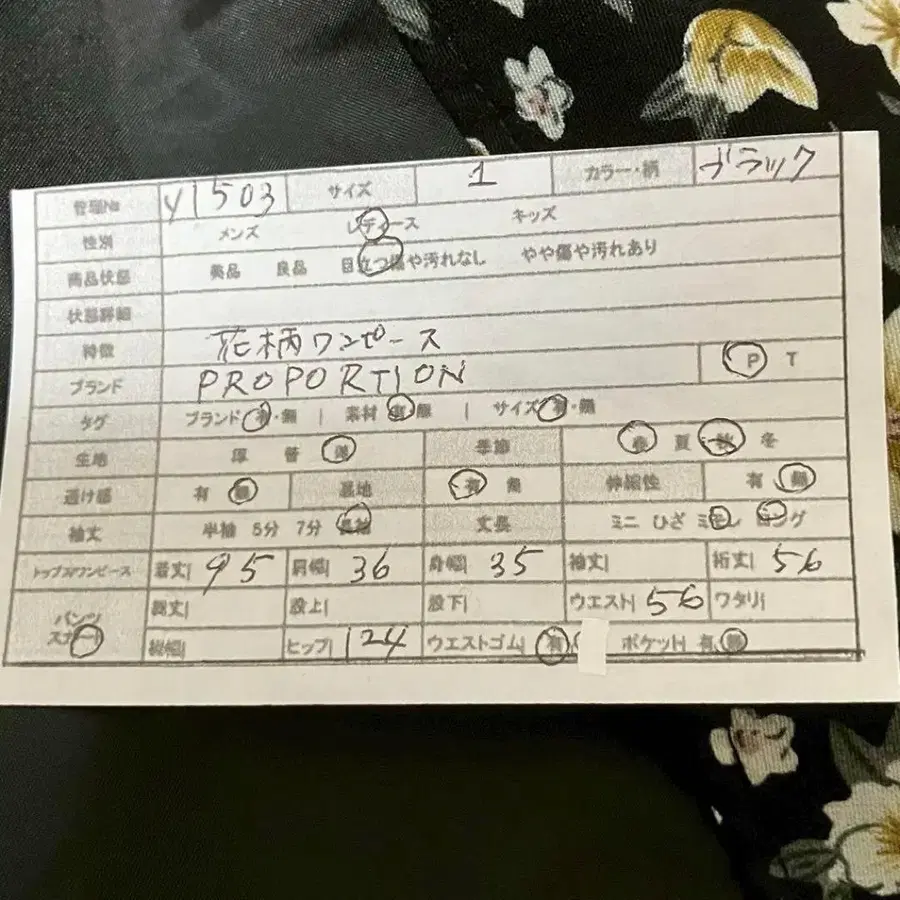 管理No y1503 サイズ 1 カラー・柄 ブラック
性別 メンズ レディース キッズ
商品状態 美品 良品 目立つ傷や汚れなし やや傷や汚れあり
状態詳細
特徴 花柄ワンピース
ブランド PROPORTION P T
タグ ブランド 有・無 | 素材 有・無 | サイズ 有・無
生地 厚 普 薄 季節 春 夏 秋 冬
透け感 有 無 裏地 有 無 伸縮性 有 無
袖丈 半袖 5分 7分 長袖 丈長 ミニ ひざ ミモレ ロング
トップス/ワンピース 着丈| 95 肩幅| 36 身幅| 35 袖丈| 裄丈| 56
パンツ 総丈| 股上| 股下| ウエスト| 56 ワタリ|
スカート 裾幅| ヒップ| 124 ウエストゴム| 有 ポケット| 有 無